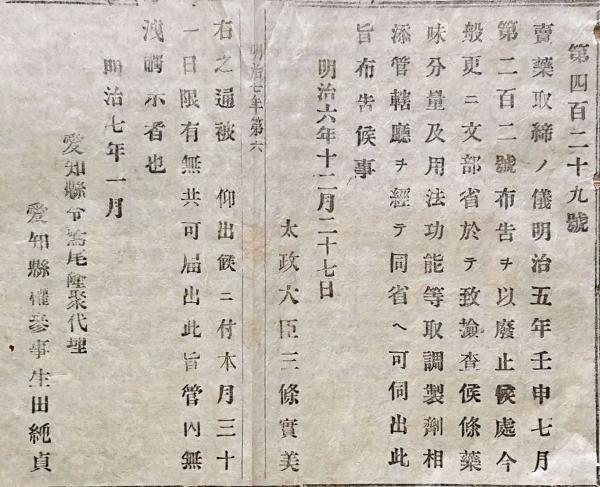 第四百二十九號
賣藥取締ノ儀明治五年壬申七月
第二百二號布告ヲ以廢止候處今
般更ニ文部省於テ致撿査候條藥
味分量及用法功能等取調製劑相
添管轄廳ヲ經テ同省ヘ可伺出此
旨布告候事
明治六年十二月二十七日
太政大臣三條實美
明治七年第六
右之通被 仰出候ニ付本月三十
一日限有無共可届出此旨管内無
洩觸示者也
明治七年一月
愛知縣令鷲尾隆聚代理
愛知縣權參事生田純貞